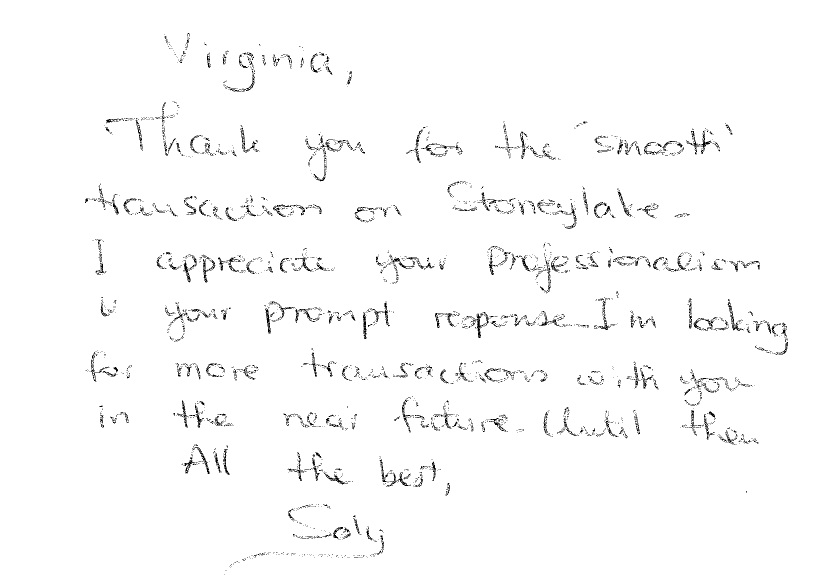 Virginia,
Thank you for the "smooth"
transaction on Stoneylake.
I appreciate your professionalism
& your prompt response. I'm looking
for more transactions with you
in the near future. Until then
All the best,
Soly